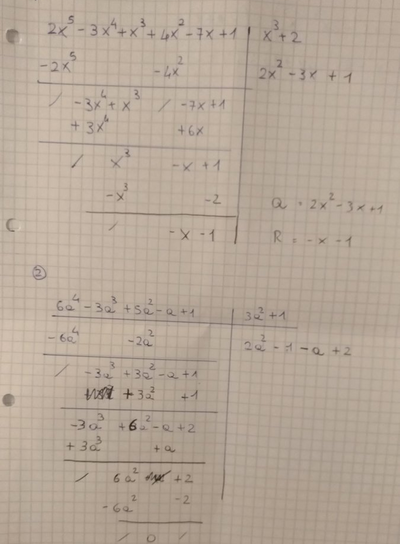 2x⁵ - 3x⁴ + x³ + 4x² - 7x + 1 | x³ + 2
-2x⁵ - 4x² | 2x² - 3x + 1
/ -3x⁴ + x³ / -7x + 1
+ 3x⁴ + 6x
/ x³ - x + 1
- x³ - 2
/ - x - 1
Q = 2x² - 3x + 1
R = - x - 1
②
6a⁴ - 3a³ + 5a² - a + 1 | 3a² + 1
- 6a⁴ - 2a² | 2a² - 1 - a + 2
/ - 3a³ + 3a² - a + 1
+ 3a² + 1
- 3a³ + 6a² - a + 2
+ 3a³ + a
/ 6a² + 2
- 6a² - 2
/ 0 /